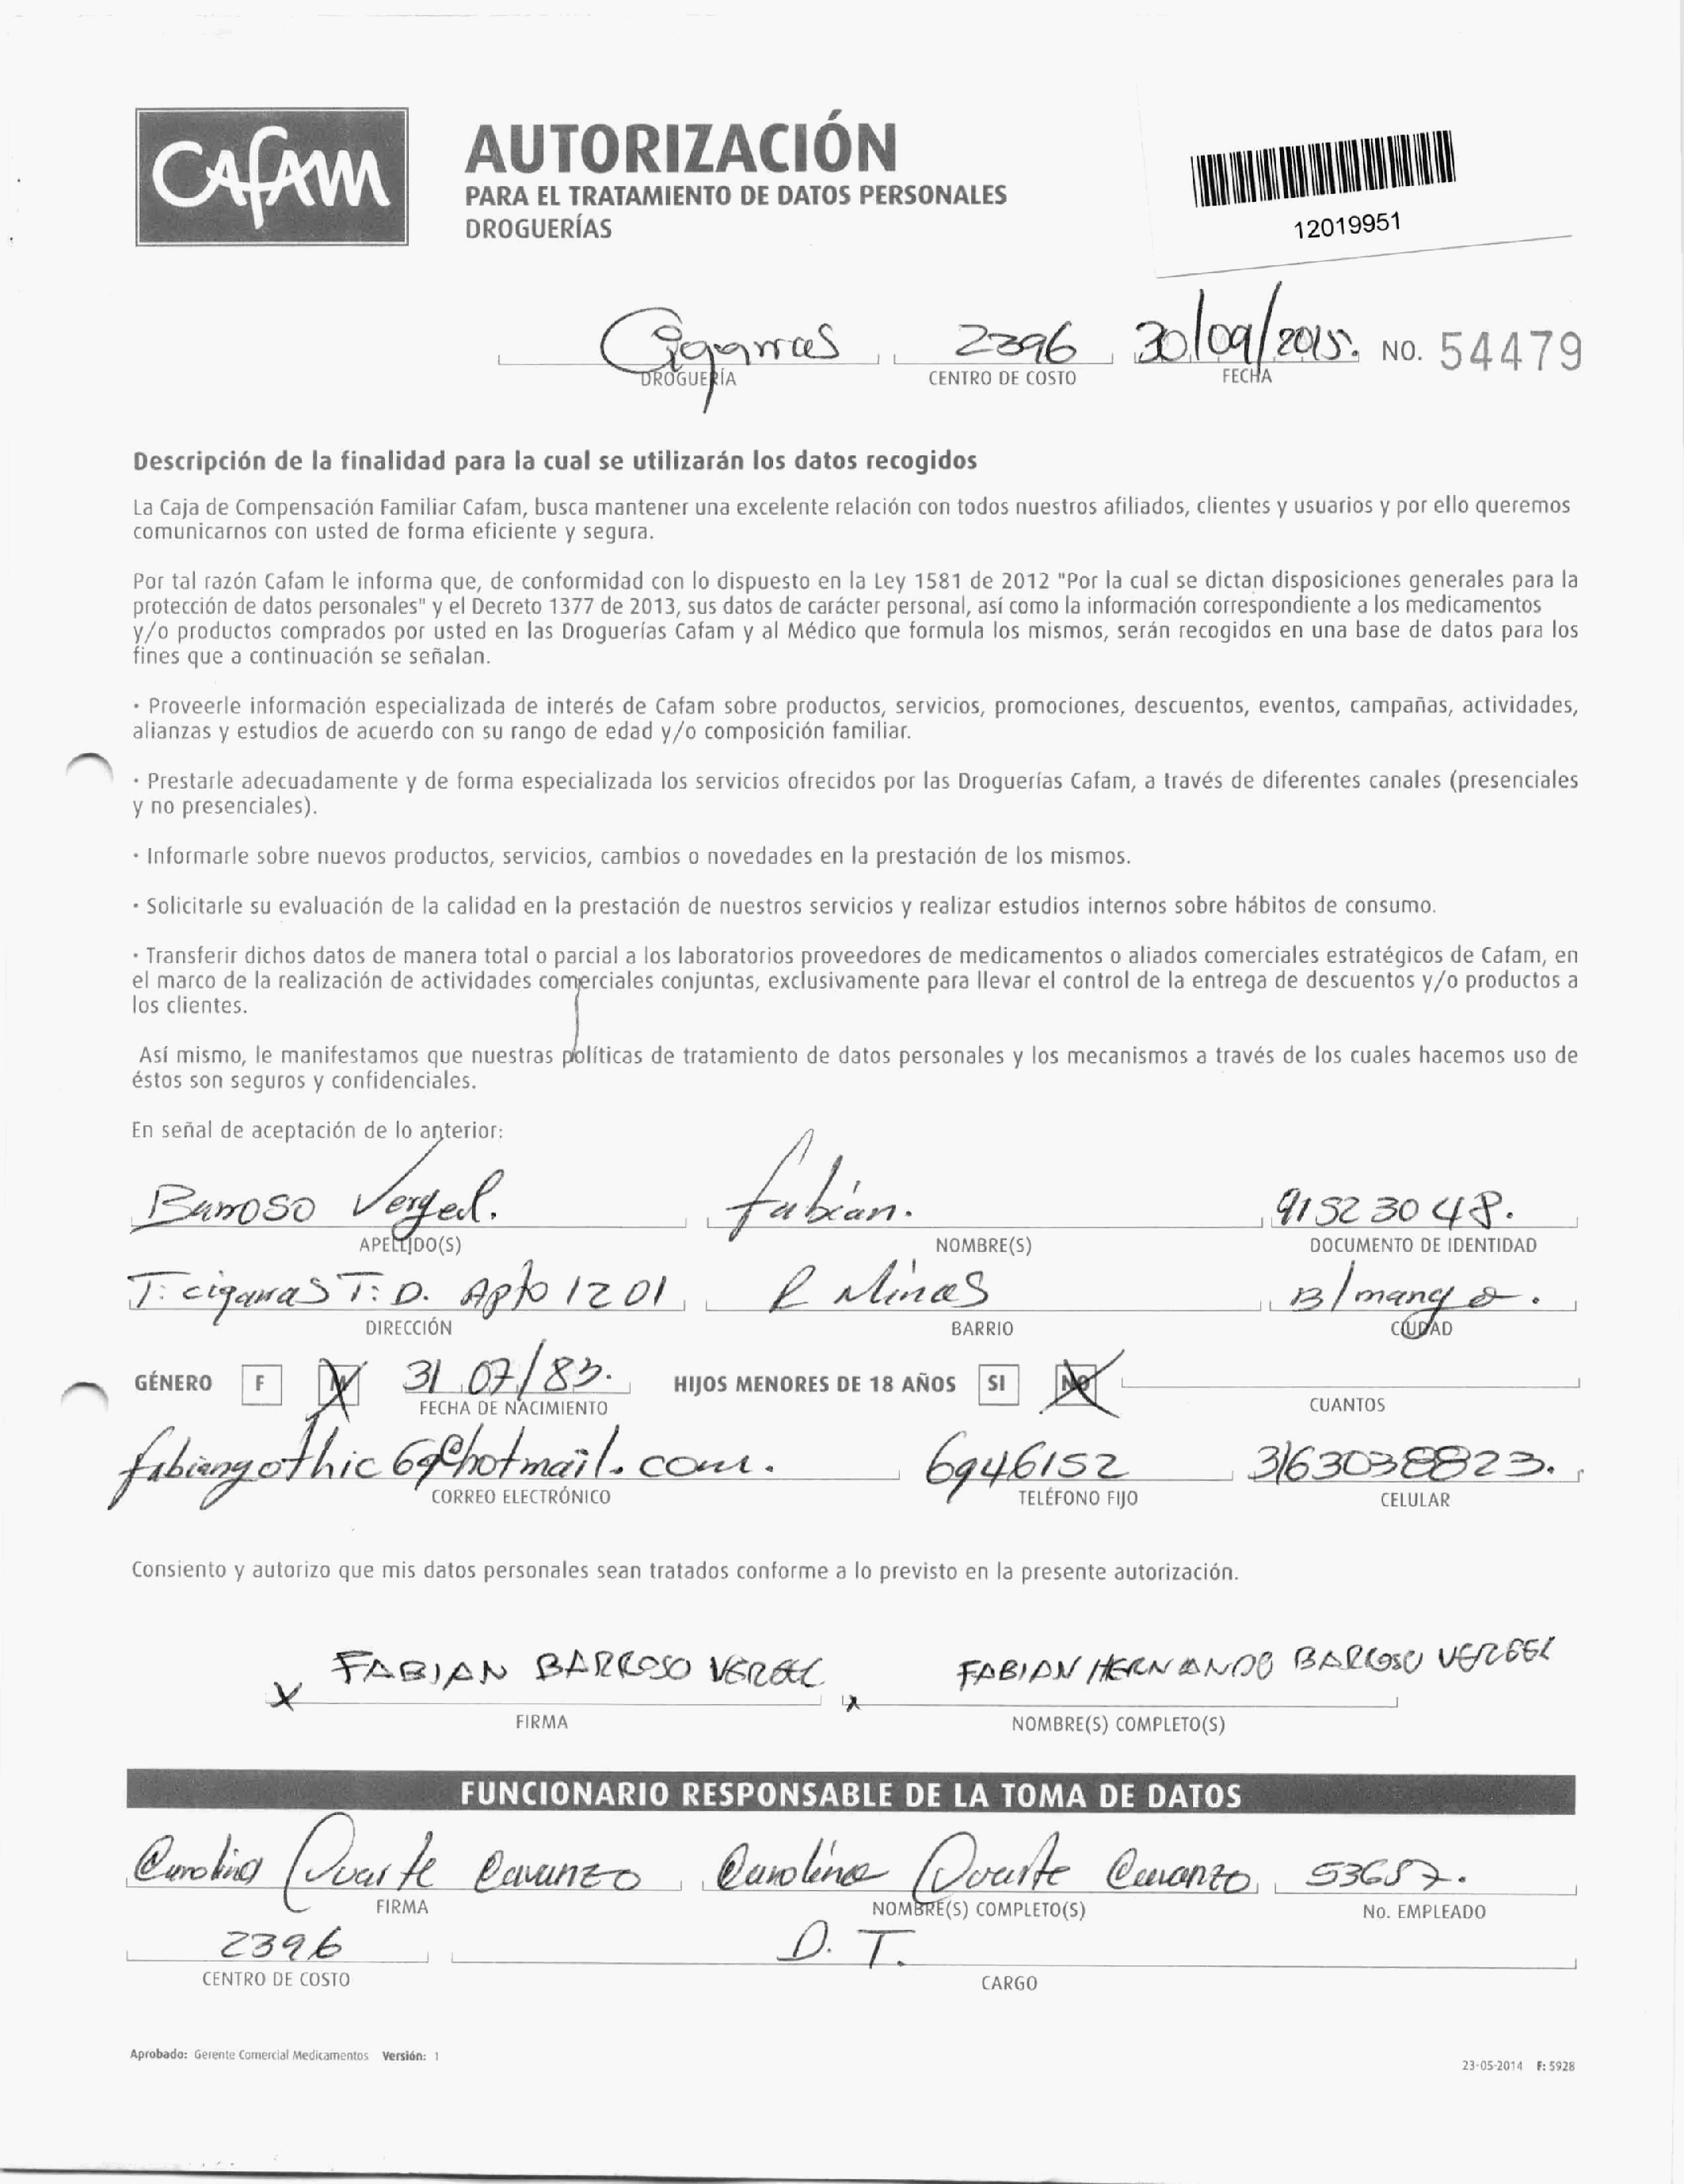 CAFAM
AUTORIZACIÓN
PARA EL TRATAMIENTO DE DATOS PERSONALES
DROGUERÍAS
12019951
2396 30/09/2015. NO. 54479
DROGUERÍA CENTRO DE COSTO FECHA
Descripción de la finalidad para la cual se utilizarán los datos recogidos
La Caja de Compensación Familiar Cafam, busca mantener una excelente relación con todos nuestros afiliados, clientes y usuarios y por ello queremos
comunicarnos con usted de forma eficiente y segura.
Por tal razón Cafam le informa que, de conformidad con lo dispuesto en la Ley 1581 de 2012 "Por la cual se dictan disposiciones generales para la
protección de datos personales" y el Decreto 1377 de 2013, sus datos de carácter personal, así como la información correspondiente a los medicamentos
y/o productos comprados por usted en las Droguerías Cafam y al Médico que formula los mismos, serán recogidos en una base de datos para los
fines que a continuación se señalan.
· Proveerle información especializada de interés de Cafam sobre productos, servicios, promociones, descuentos, eventos, campañas, actividades,
alianzas y estudios de acuerdo con su rango de edad y/o composición familiar.
· Prestarle adecuadamente y de forma especializada los servicios ofrecidos por las Droguerías Cafam, a través de diferentes canales (presenciales
y no presenciales).
· Informarle sobre nuevos productos, servicios, cambios o novedades en la prestación de los mismos.
· Solicitarle su evaluación de la calidad en la prestación de nuestros servicios y realizar estudios internos sobre hábitos de consumo.
· Transferir dichos datos de manera total o parcial a los laboratorios proveedores de medicamentos o aliados comerciales estratégicos de Cafam, en
el marco de la realización de actividades comerciales conjuntas, exclusivamente para llevar el control de la entrega de descuentos y/o productos a
los clientes.
Así mismo, le manifestamos que nuestras políticas de tratamiento de datos personales y los mecanismos a través de los cuales hacemos uso de
éstos son seguros y confidenciales.
En señal de aceptación de lo anterior:
Barroso Vergel. Fabian. 91523048.
APELLIDO(S) NOMBRE(S) DOCUMENTO DE IDENTIDAD
T: cigarras T: D. Apto 1201 R Minas B/manga.
DIRECCIÓN BARRIO CIUDAD
GÉNERO F M 31 07/83. HIJOS MENORES DE 18 AÑOS SI NO
FECHA DE NACIMIENTO CUANTOS
fabiangothic69@hotmail.com. 6946152 3163038823.
CORREO ELECTRÓNICO TELÉFONO FIJO CELULAR
Consiento y autorizo que mis datos personales sean tratados conforme a lo previsto en la presente autorización.
X FABIAN BARROSO VERGEL X FABIAN HERNANDO BARROSO VERGEL
FIRMA NOMBRE(S) COMPLETO(S)
FUNCIONARIO RESPONSABLE DE LA TOMA DE DATOS
Carolina Duarte Cavanzo Carolina Duarte Cavanzo 53657.
FIRMA NOMBRE(S) COMPLETO(S) No. EMPLEADO
2396 D. T.
CENTRO DE COSTO CARGO
Aprobado: Gerente Comercial Medicamentos Versión: 1
23-05-2014 F: 5928